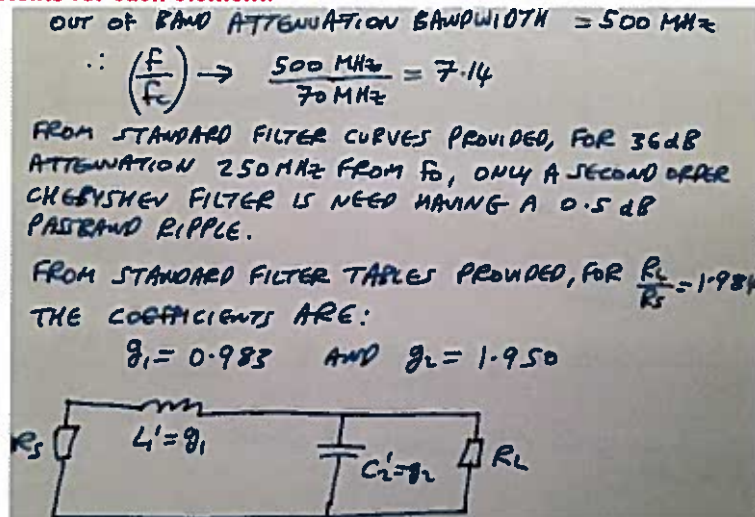 ients for each element.
OUT OF BAND ATTENUATION BANDWIDTH = 500 MHz
∴ (f/fc) → 500 MHz/70 MHz = 7.14
FROM STANDARD FILTER CURVES PROVIDED, FOR 36dB
ATTENUATION 250MHz FROM fo, ONLY A SECOND ORDER
CHEBYSHEV FILTER IS NEED HAVING A 0.5 dB
PASSBAND RIPPLE.
FROM STANDARD FILTER TABLES PROVIDED, FOR RL/RS = 1.984
THE COEFFICIENTS ARE:
g1 = 0.983 AND g2 = 1.950
RS L1'=g1 C2'=g2 RL